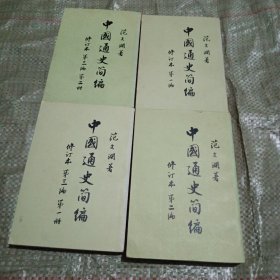 范文澜著
中國通史简编
修订本 第三编 第二册
范文澜著
中國通史简编
修订本 第一编
范文澜著
中國通史简编
修订本 第三编 第一册
范文澜著
中國通史简编
修订本 第二编